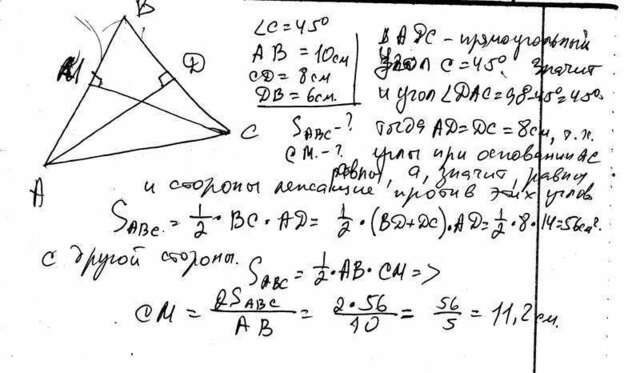 B
∠C = 45°
AB = 10см
CD = 8см
DB = 6см.
S_ABC - ?
CM. - ?
M
D
C
A
ΔADC - прямоугольный
Угол C = 45°. значит
и угол ∠DAC = 98-45° = 45°
тогда AD = DC = 8см, т.к.
углы при основании AC
равны, а, значит, равны
и стороны лежащие против этих углов
S_ABC. = 1/2 · BC · AD = 1/2 · (BD + DC) · AD = 1/2 · 8 · 14 = 56см².
С другой стороны.
S_ABC = 1/2 · AB · CM =>
CM = 2S_ABC / AB = 2·56 / 10 = 56/5 = 11,2 см.